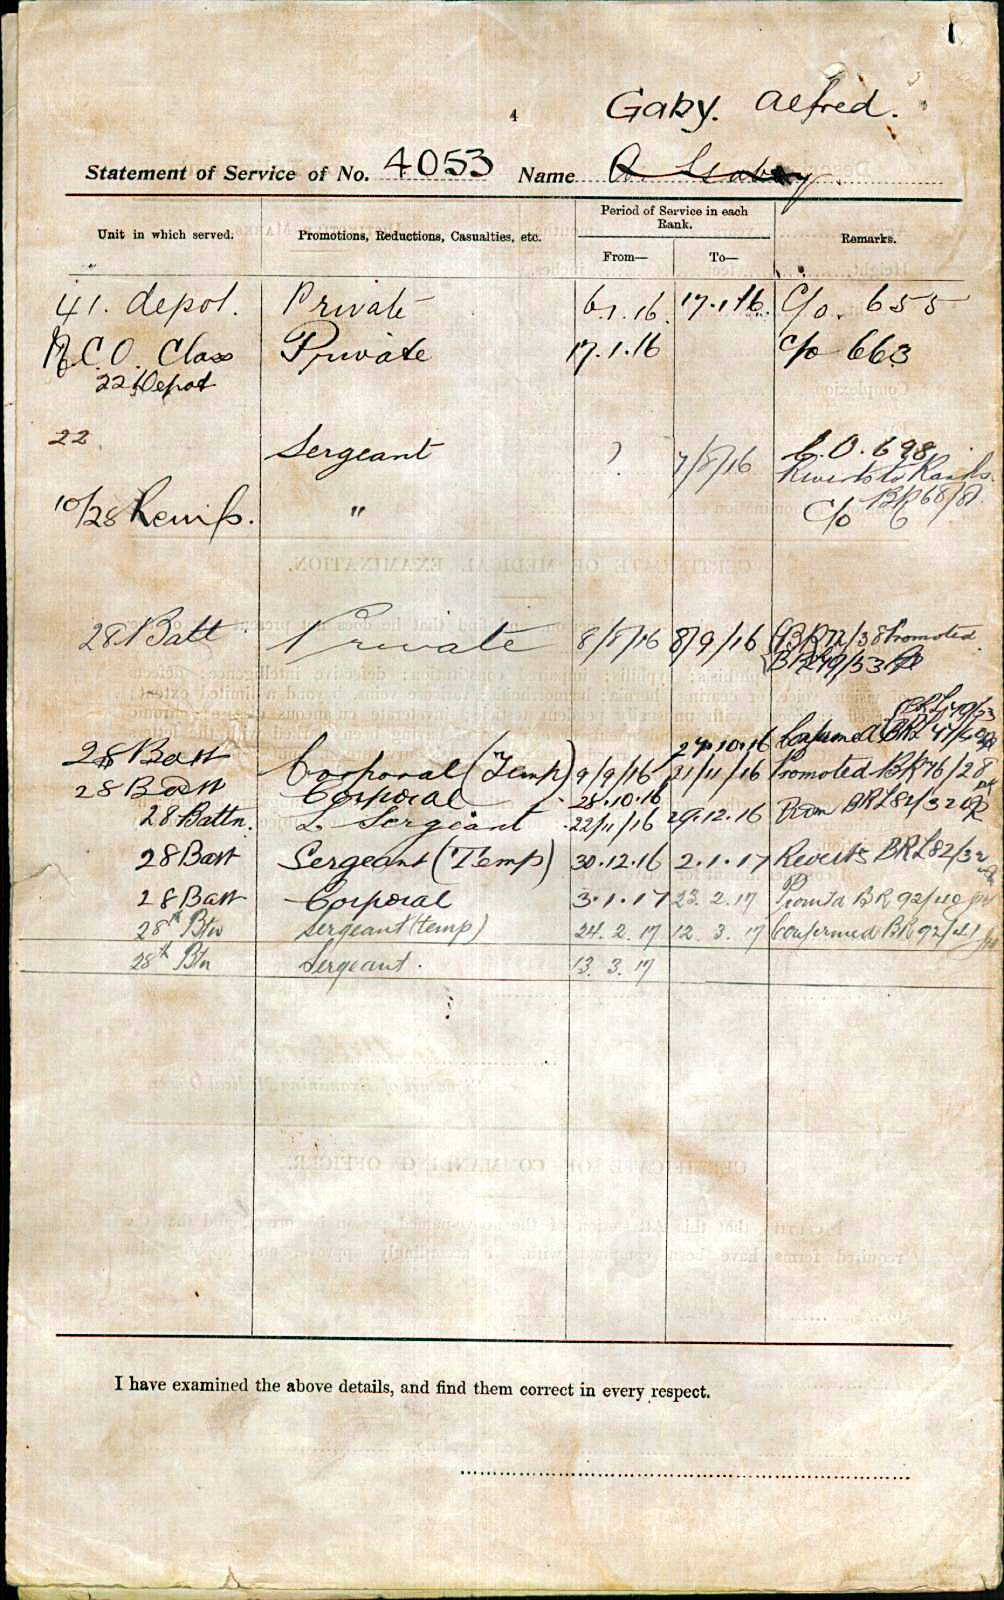 1
Gaby. Alfred.
4
Statement of Service of No. 4053 Name A. Gabey.
Unit in which served. Promotions, Reductions, Casualties, etc. Period of Service in each Rank. From— To— Remarks.
41. depot. Private 6.1.16 17.1.16. C/o. 655
N.C.O. Class Private 17.1.16 C/o 663
22 Depot
22 Sergeant ? 7/8/16 C.O. 698
Reverts to Ranks.
BR 68/
10/28 Reinfs. " C/o
28 Batt Private 8/8/16 8/9/16 BR 72/38 Promoted
BRL 49/53
BRL 49/53
27.10.16 Confirmed BRL
28 Batt Corporal (Temp) 9/9/16 21/11/16 Promoted BR 76/28
28 Batt Corporal 28.10.16
28 Battn. L. Sergeant 22/11/16 29.12.16 Prom BRL 82/32
28 Batt Sergeant (Temp) 30.12.16 2.1.17 Reverts BRL 82/32
28 Batt Corporal 3.1.17 23.2.17 Prom'td BR 92/40
28th Btn Sergeant (temp) 24.2.17 12.3.17 Confirmed BR 92/41
28th Btn Sergeant. 13.3.17
I have examined the above details, and find them correct in every respect.